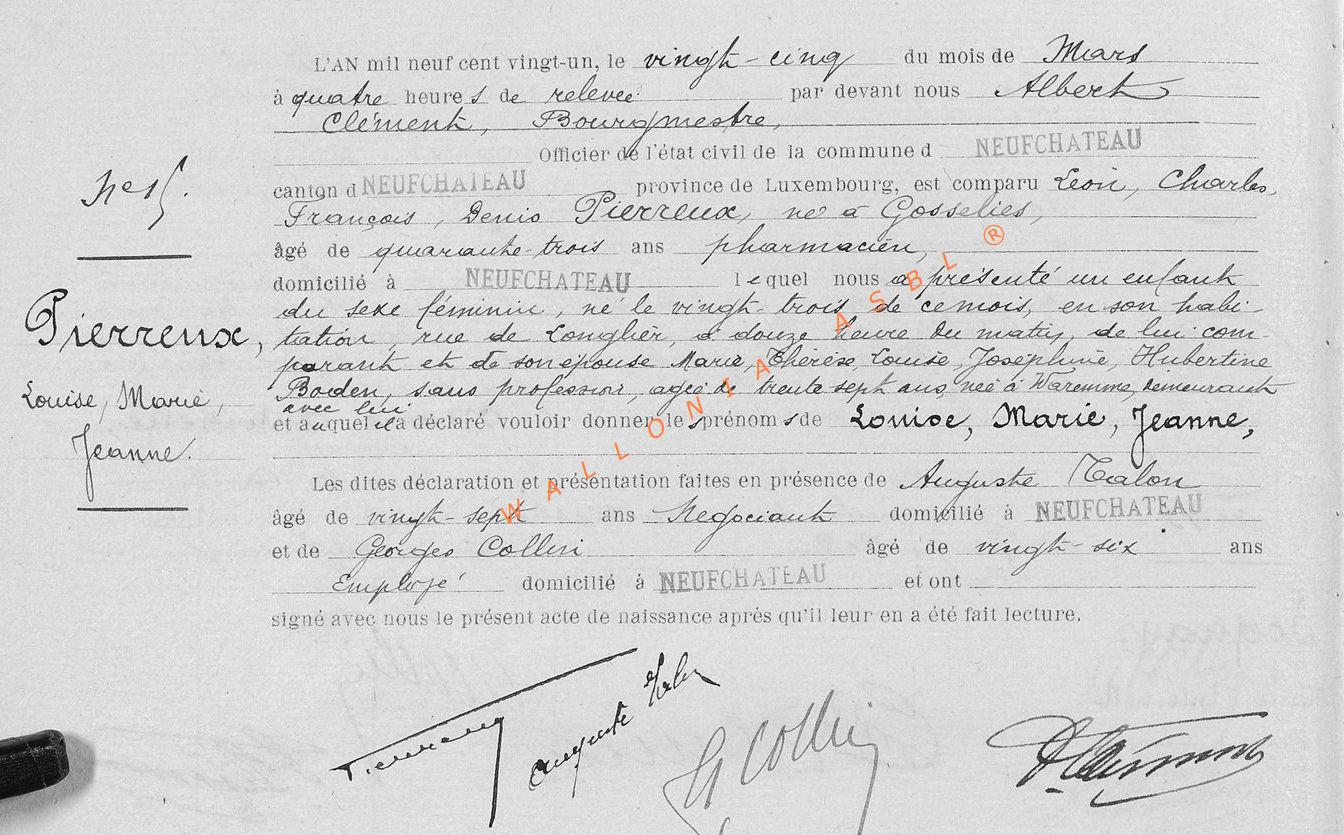 L'AN mil neuf cent vingt-un, le vingt-cinq du mois de Mars
à quatre heures de relevée par devant nous Albert
Clément, Bourgmestre,
Officier de l'état civil de la commune d NEUFCHATEAU
canton d NEUFCHATEAU province de Luxembourg, est comparu Léon, Charles,
François, Denis Pierreux, né à Gosselies,
âgé de quarante-trois ans pharmacien,
domicilié à NEUFCHATEAU lequel nous a présenté un enfant
du sexe féminin, né le vingt-trois de ce mois, en son habi-
tation, rue de Longlier, à douze heure du matin, de lui com-
parant et de son épouse Marie, Thérèse, Louise, Joséphine, Hubertine
Boden, sans profession, agée de trente sept ans, née à Waremme, demeurant
avec lui
et auquel il a déclaré vouloir donner les prénoms de Louise, Marie, Jeanne,
Les dites déclaration et présentation faites en présence de Auguste Talon
âgé de vingt-sept ans Négociant domicilié à NEUFCHATEAU
et de Georges Collin âgé de vingt-six ans
Employé domicilié à NEUFCHATEAU et ont
signé avec nous le présent acte de naissance après qu'il leur en a été fait lecture.
N° 15.
Pierreux,
Louise, Marie,
Jeanne.
WALLONIA ASBL ®
Pierreux
Auguste Talon
G Collin
AClément